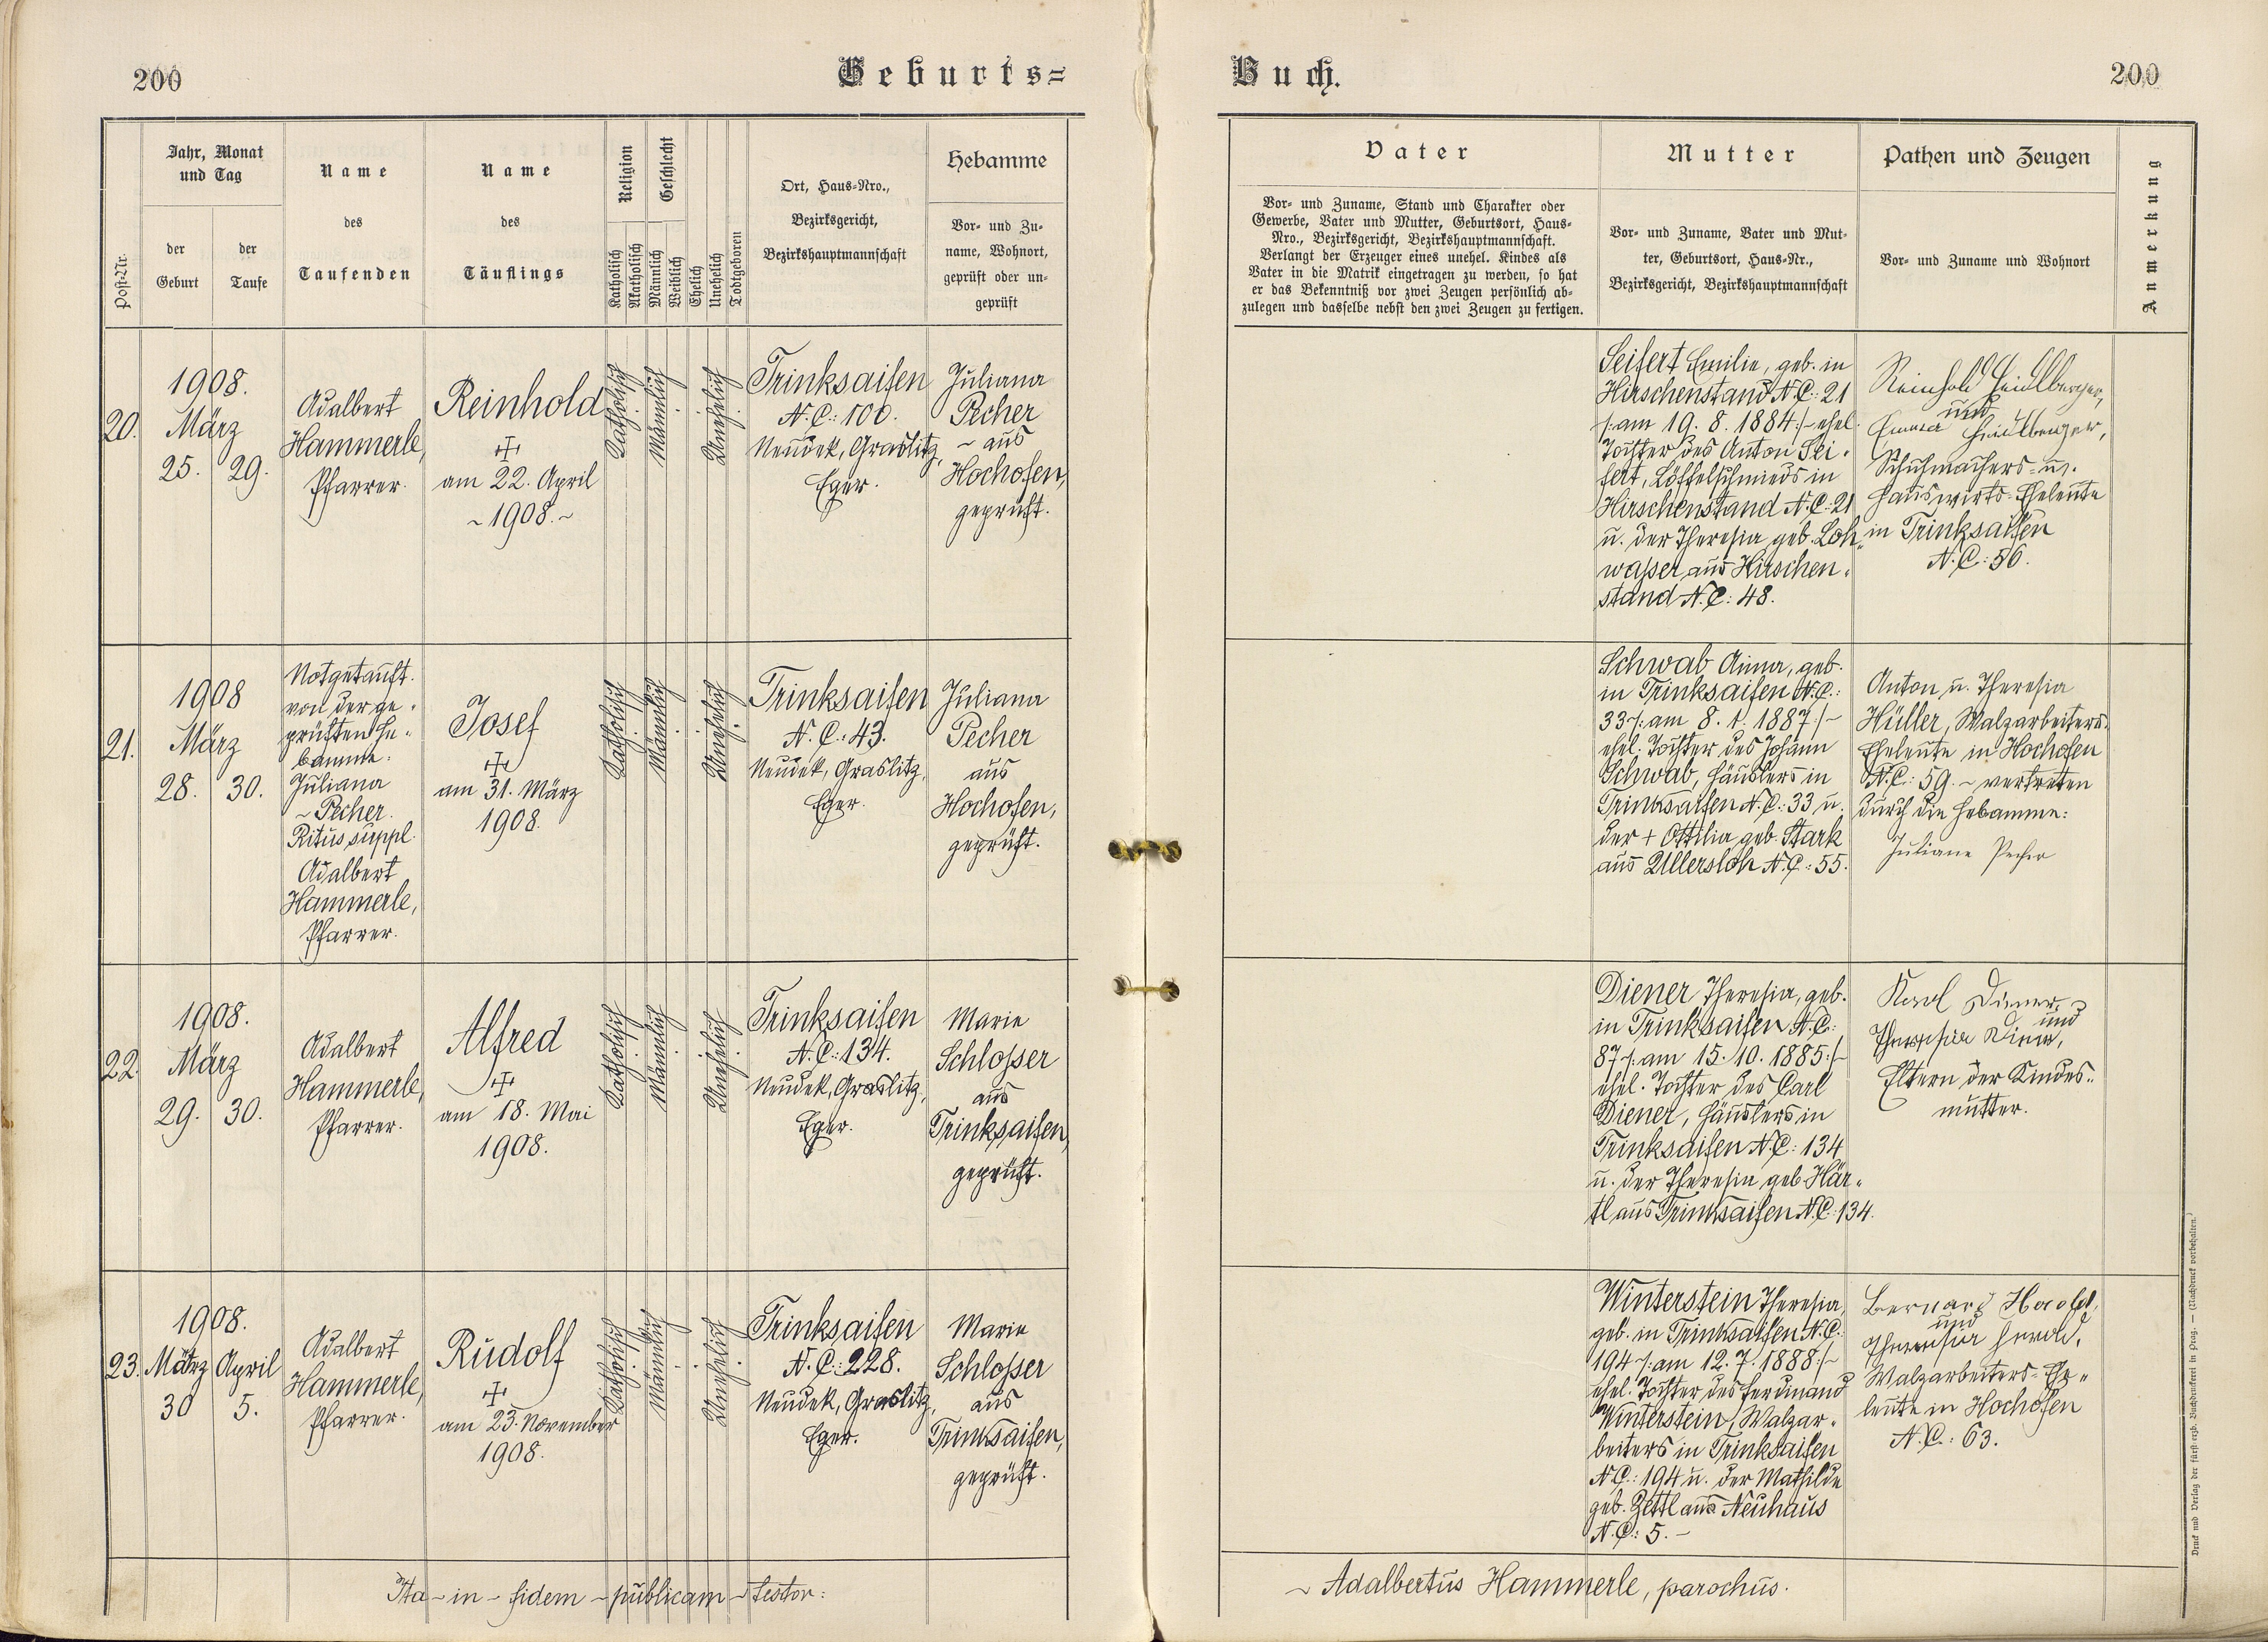 200
Geburts=
Buch.
200
Post-Nr.
Jahr, Monat
und Tag
der
Geburt
der
Taufe
Name
des
Taufenden
Name
des
Täuflings
Religion
Katholisch
Akatholisch
Geschlecht
Männlich
Weiblich
Ehelich
Unehelich
Todtgeboren
Ort, Haus-Nro.,
Bezirksgericht,
Bezirkshauptmannschaft
Hebamme
Vor- und Zu-
name, Wohnort,
geprüft oder un-
geprüft
Vater
Vor- und Zuname, Stand und Charakter oder
Gewerbe, Vater und Mutter, Geburtsort, Haus-
Nro., Bezirksgericht, Bezirkshauptmannschaft.
Verlangt der Erzeuger eines unehel. Kindes als
Vater in die Matrik eingetragen zu werden, so hat
er das Bekenntniß vor zwei Zeugen persönlich ab-
zulegen und dasselbe nebst den zwei Zeugen zu fertigen.
Mutter
Vor- und Zuname, Vater und Mut-
ter, Geburtsort, Haus-Nr.,
Bezirksgericht, Bezirkshauptmannschaft
Pathen und Zeugen
Vor- und Zuname und Wohnort
Anmerkung
20.
1908.
März
25. 29.
Adalbert
Hammerle,
Pfarrer.
Reinhold
am 22. April
~1908.~
Katholisch
Männlich
Unehelich
Trinksaifen
N.C.: 100.
Neudek, Graslitz,
Eger.
Juliana
Pecher
~ aus
Hochofen,
geprüft.
Seifert Emilie, geb. in
Hirschenstand N.C.: 21
/:am 19. 8. 1884:/~ehel.
Tochter des Anton Sei-
fert, Löffelschmieds in
Hirschenstand N.C.: 21
u. der Theresia geb. Loh-
wasser aus Hirschen-
stand N.C.: 48.
Reinhold Heidlberger,
und
Emma Heidlberger,
Schuhmachers- u.
Hauswirts-Eheleute
in Trinksaifen
N.C.: 56.
21.
1908
März
28. 30.
Notgetauft
von der ge-
prüften He-
bamme:
Juliana
~Pecher.
Ritus suppl.
Adalbert
Hammerle,
Pfarrer.
Josef
am 31. März
1908.
Katholisch
Männlich
Unehelich
Trinksaifen
N.C.: 43.
Neudek, Graslitz,
Eger.
Juliana
Pecher
aus
Hochofen,
geprüft.
Schwab Anna, geb.
in Trinksaifen N.C.:
33 /:am 8. 1. 1887:/~
ehel. Tochter des Johann
Schwab, Häuslers in
Trinksaifen N.C.: 33 u.
der + Ottilia geb. Stark
aus Ullersloh N.C.: 55.
Anton u. Theresia
Hüller, Walzarbeiters-
Eheleute in Hochofen
N.C.: 59. ~ vertreten
durch die Hebamme:
Juliane Pecher
22.
1908.
März
29. 30.
Adalbert
Hammerle,
Pfarrer.
Alfred
am 18. Mai
1908.
Katholisch
Männlich
Unehelich
Trinksaifen
N.C.: 134.
Neudek, Graslitz,
Eger.
Marie
Schlosser
aus
Trinksaifen,
geprüft.
Diener Theresia, geb.
in Trinksaifen N.C.:
87 /:am 15. 10. 1885:/~
ehel. Tochter des Carl
Diener, Häuslers in
Trinksaifen N.C.: 134
u. der Theresia geb. Här-
tl aus Trinksaifen N.C.: 134.
Karl Diener,
und
Theresia Diener,
Eltern der Kindes-
mutter.
23.
1908.
März April
30 5.
Adalbert
Hammerle,
Pfarrer.
Rudolf
am 23. November
1908.
Katholisch
Männlich
Unehelich
Trinksaifen
N.C.: 228.
Neudek, Graslitz,
Eger.
Marie
Schlosser
aus
Trinksaifen,
geprüft.
Winterstein Theresia,
geb. in Trinksaifen N.C.:
194 /:am 12. 7. 1888:/~
ehel. Tochter des Ferdinand
Winterstein, Walzar-
beiters in Trinksaifen
N.C.: 194 u. der Mathilde
geb. Zettl aus Neuhaus
N.C.: 5. ~
Bernard
und
Theresia
Walzarbeiters-Ehe-
leute in Hochofen
N.C.: 63.
Ita ~ in ~ fidem ~ publicam ~ testor:
~ Adalbertus Hammerle, parochus.
Druck und Verlag der fürst-erzb. Buchdruckerei in Prag. — (Nachdruck vorbehalten.)